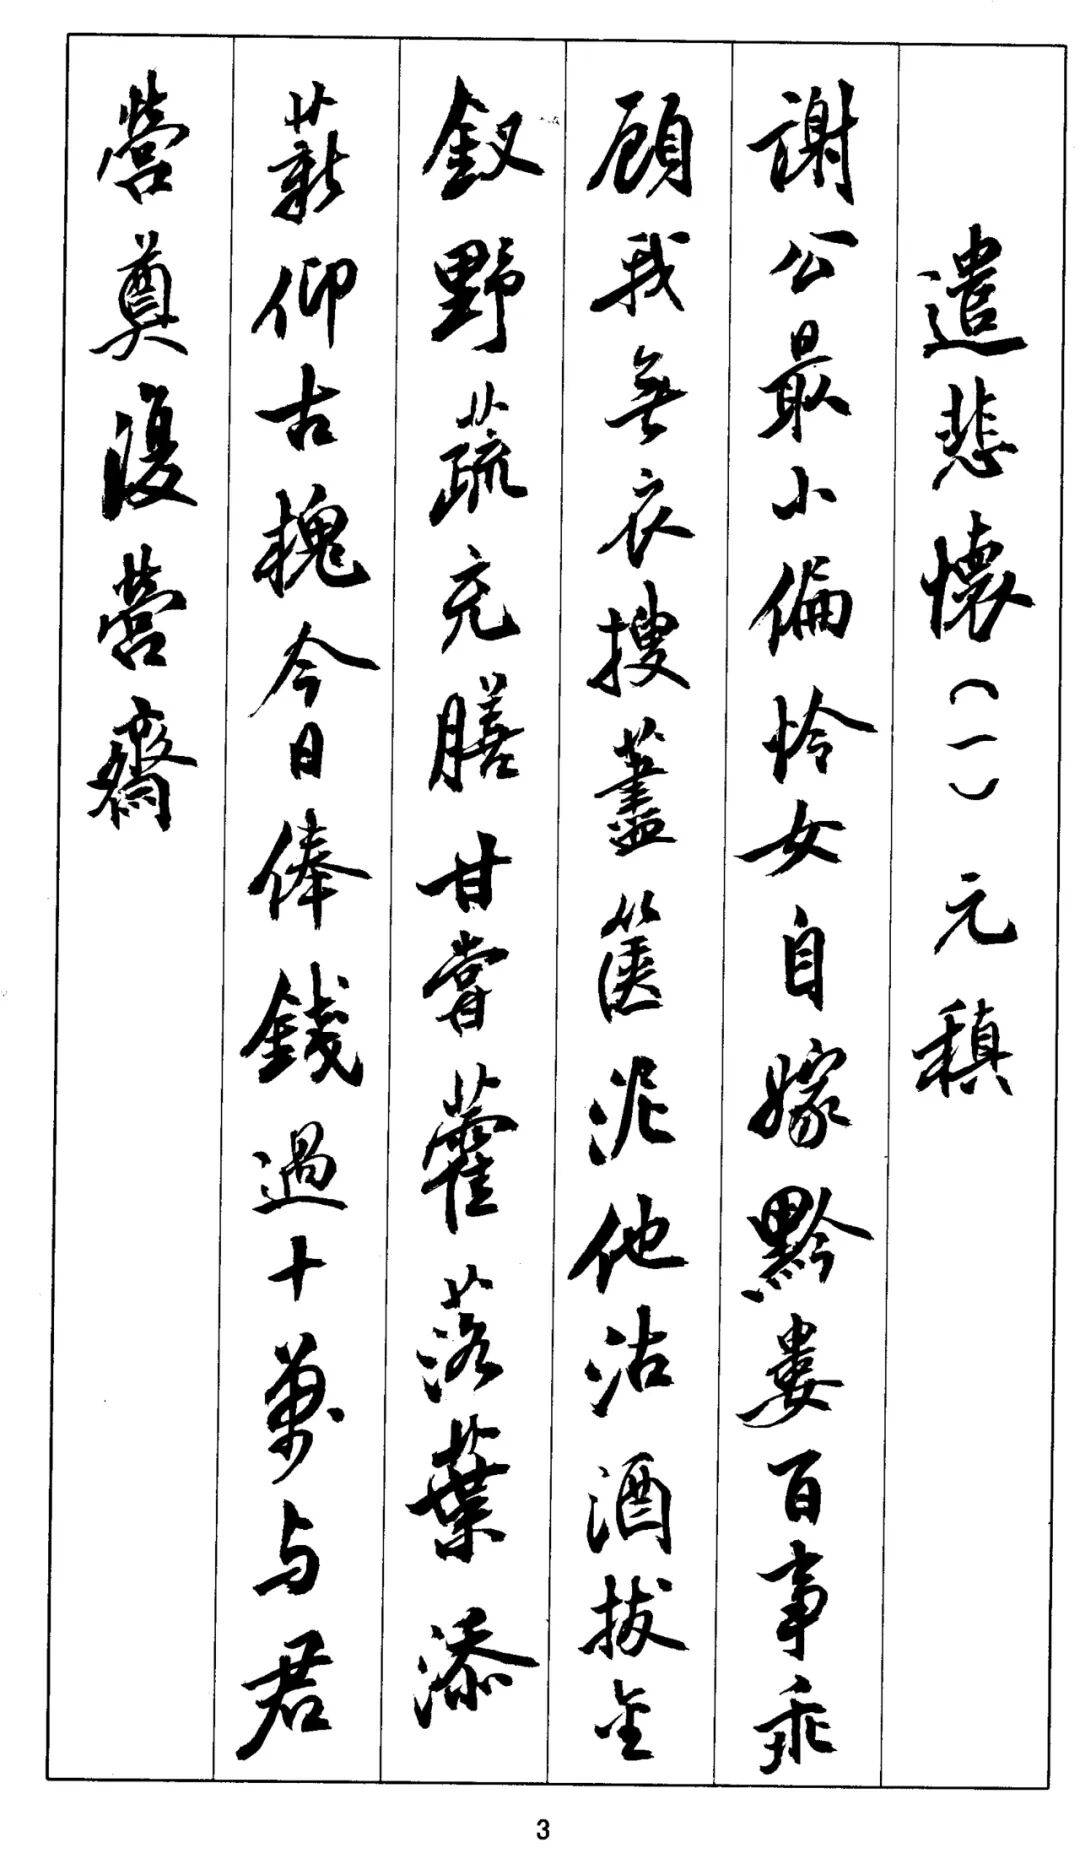 遣悲懷（一）元稹
謝公最小偏怜女自嫁黔婁百事乖
顧我無衣搜藎篋泥他沽酒拔金
釵野蔬充膳甘嘗藿落葉添
薪仰古槐今日俸錢過十萬与君
營奠復營齋
3